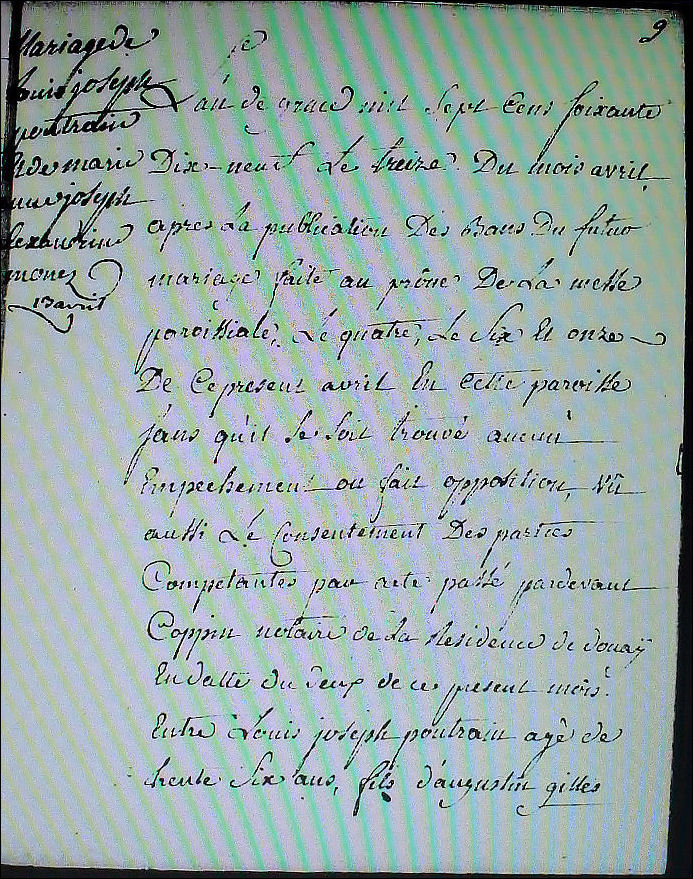 9
Mariage de
Louis joseph
poutrain
Et de marie
joseph
alexandrine
monez
13 avril
L'an de grace mil sept cens soixante
Dix-neuf Le treize Du mois avril
apres La publication Des Bans Du futur
mariage faite au prône De La messe
paroissiale, Le quatre, Le Six Et onze
De Ce present avril En cette paroisse
sans qu'il se soit trouvé aucun
Empechement ou fait opposition, vû
aussi Le Consentement Des parties
Competantes par acte passé pardevant
Coppin notaire de La Residence de douaÿ
En datte du deux de ce present mois.
Entre Louis joseph poutrain agé de
trente Six ans, fils d'augustin gilles